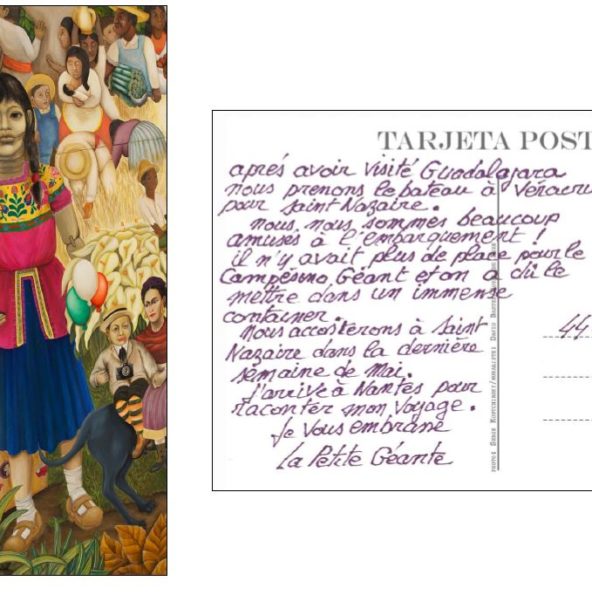 TARJETA POST
aprés avoir visité Guadalajara
nous prenons le bateau à Véracru
pour Saint Nazaire.
nous, nous sommes beaucoup
amusés à l'embarquement !
il n'y avait plus de place pour le
Campésino Géant et on a dû le
mettre dans un immense
container.
Nous accosterons à Saint
Nazaire dans la dernière
semaine de Mai.
J'arrive à Nantes pour
raconter mon voyage.
Je vous embrasse
La Petite Géante
44